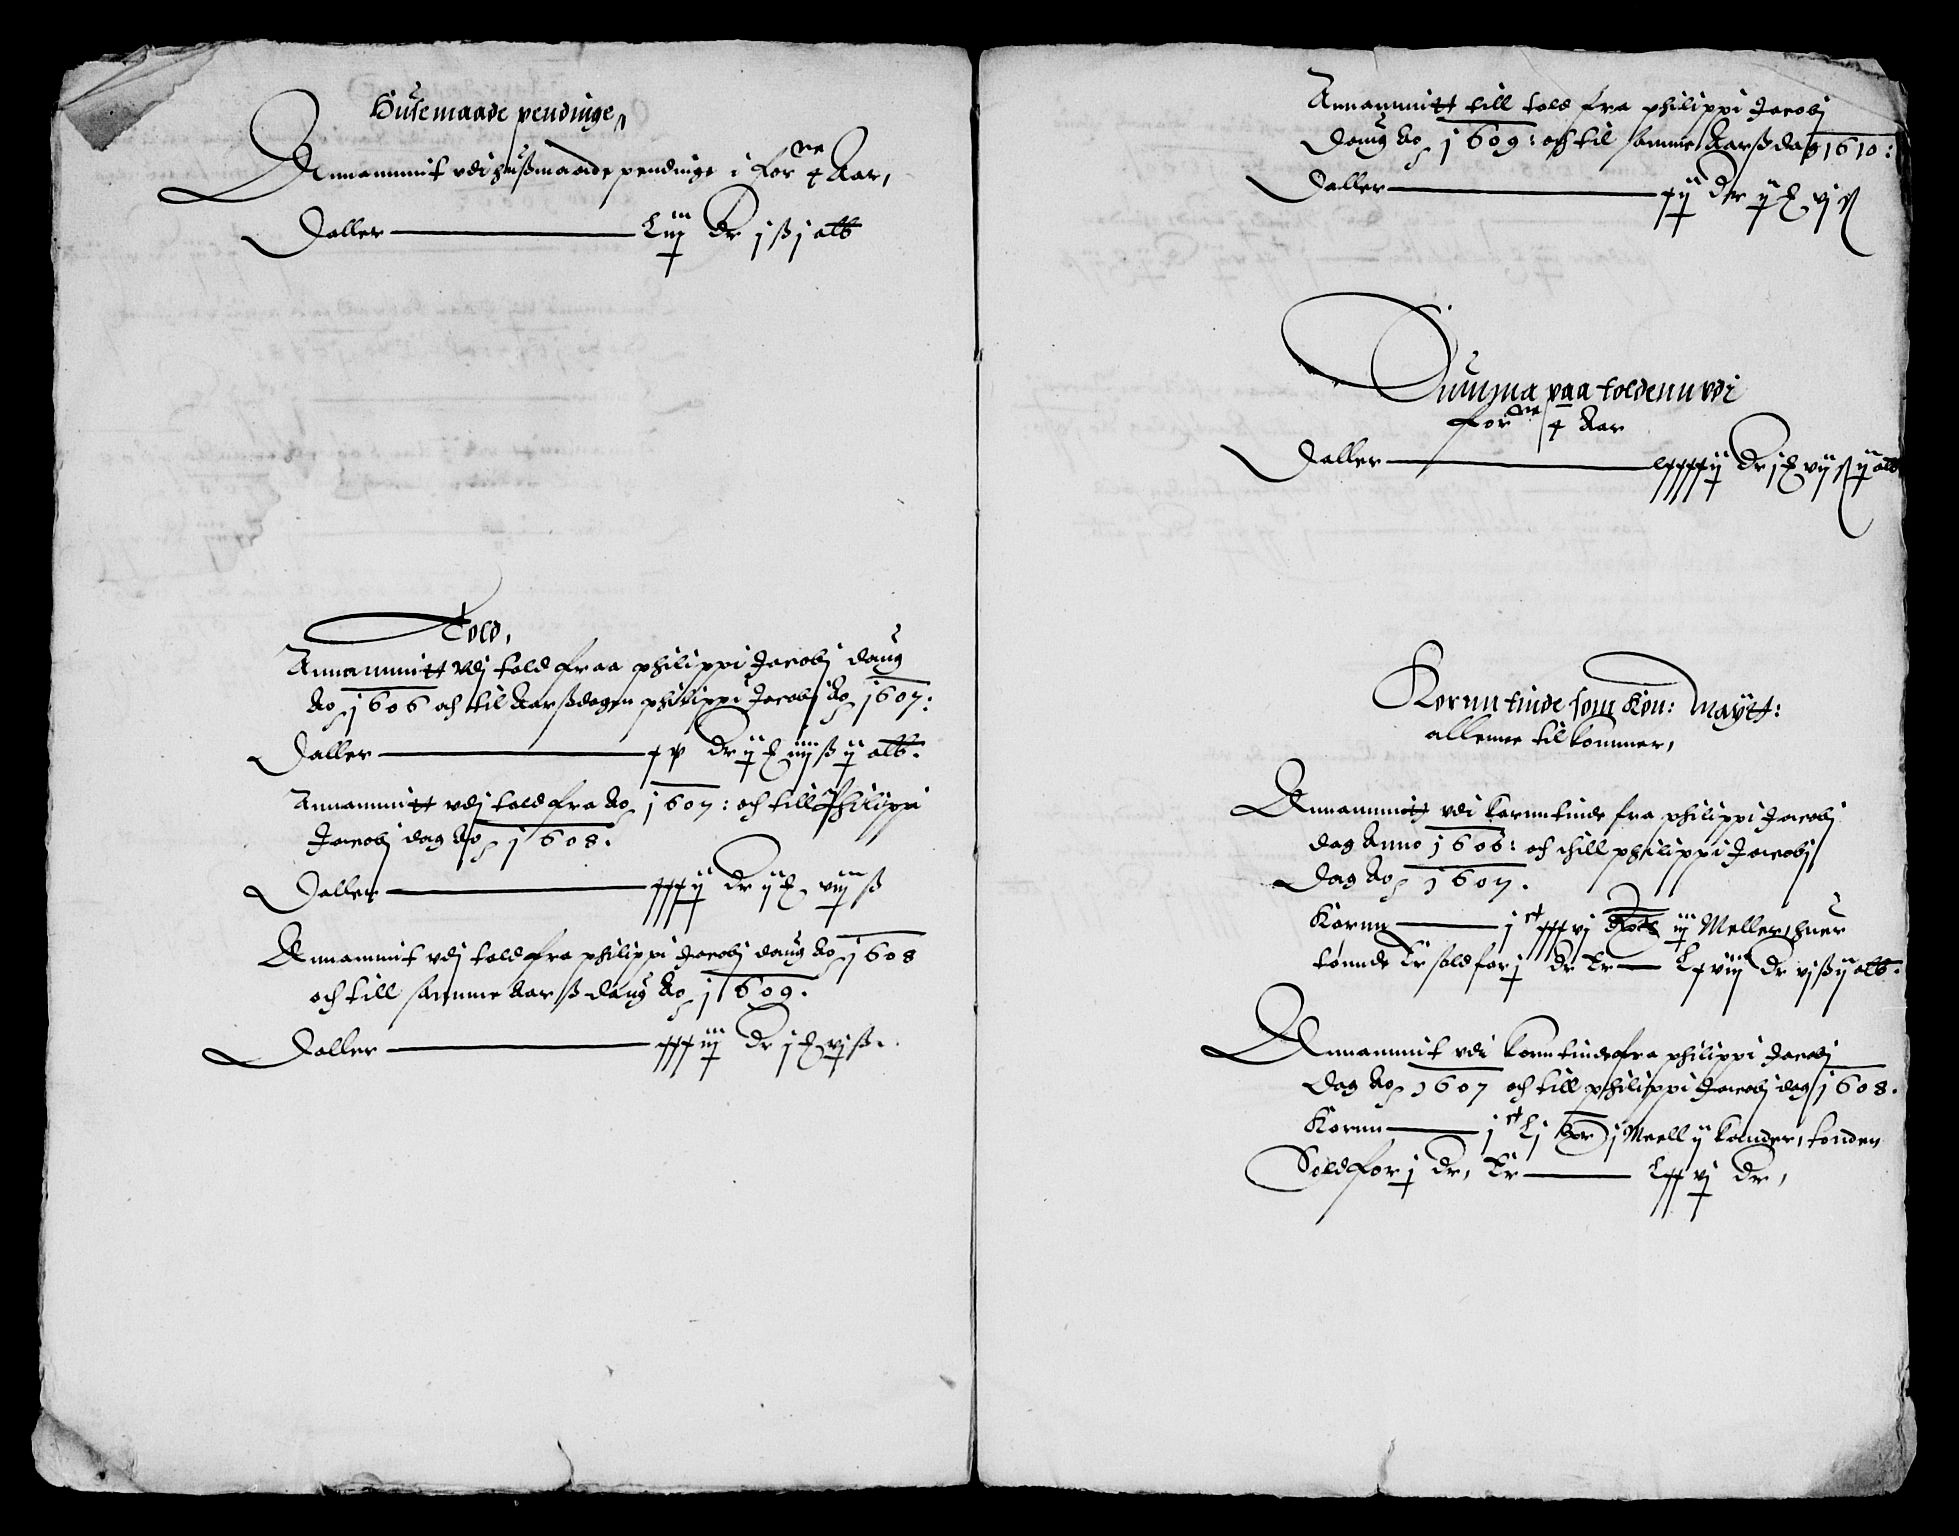 Husemaade pendinge,
Annammit vdi hußmaade pendinge i For ne 4 Aar,
Daller — Liiij Dr j ß j alb
Told,
Annammitt vdj told fraa philippi Jacobj daug
Ao 1606 och til Aarßdagen philippi Jacobj Ao 1607:
Daller — xv Dr ij iiij ß ij alb.
Annammitt vdj told fra Ao 1607: och till Philippi
Jacobj dag Ao 1608.
Daller — xxxij Dr ij viij ß
Annammit vdj told fra philippi Jacobj daug Ao 1608
och till samme Aarß daug Ao 1609.
Daller — xxxiiij Dr j vj ß.
Annammitt till told fra philippi Jacobj
daug Ao 1609: och til samme Aarß dag 1610:
Daller — xij Dr ij vj ß
Summa paa toldenn vdi
for ne 4 Aar
Daller — Dr j vij ß ij alb
Kornn tinde som Kon: Maytt:
allenne til kommer,
Annammitt vdi kornntinde fra philippi Jacobj
dag Anno 1606: och thill philippi Jacobj
Dag Ao 1607.
Kornn — j ct xxxvj iij Meller
tønnde Er sold for j Dr Er — Lxviij Dr vj ß ij alb.
Annammit vdi korntinde fra philippi Jacobj
Dag Ao 1607 och till philippi Jacobj dag 1608.
Kornn — j ct Lj j Meell ij kander, tønden
Sold for j Dr, Er — Lxxvj Dr,